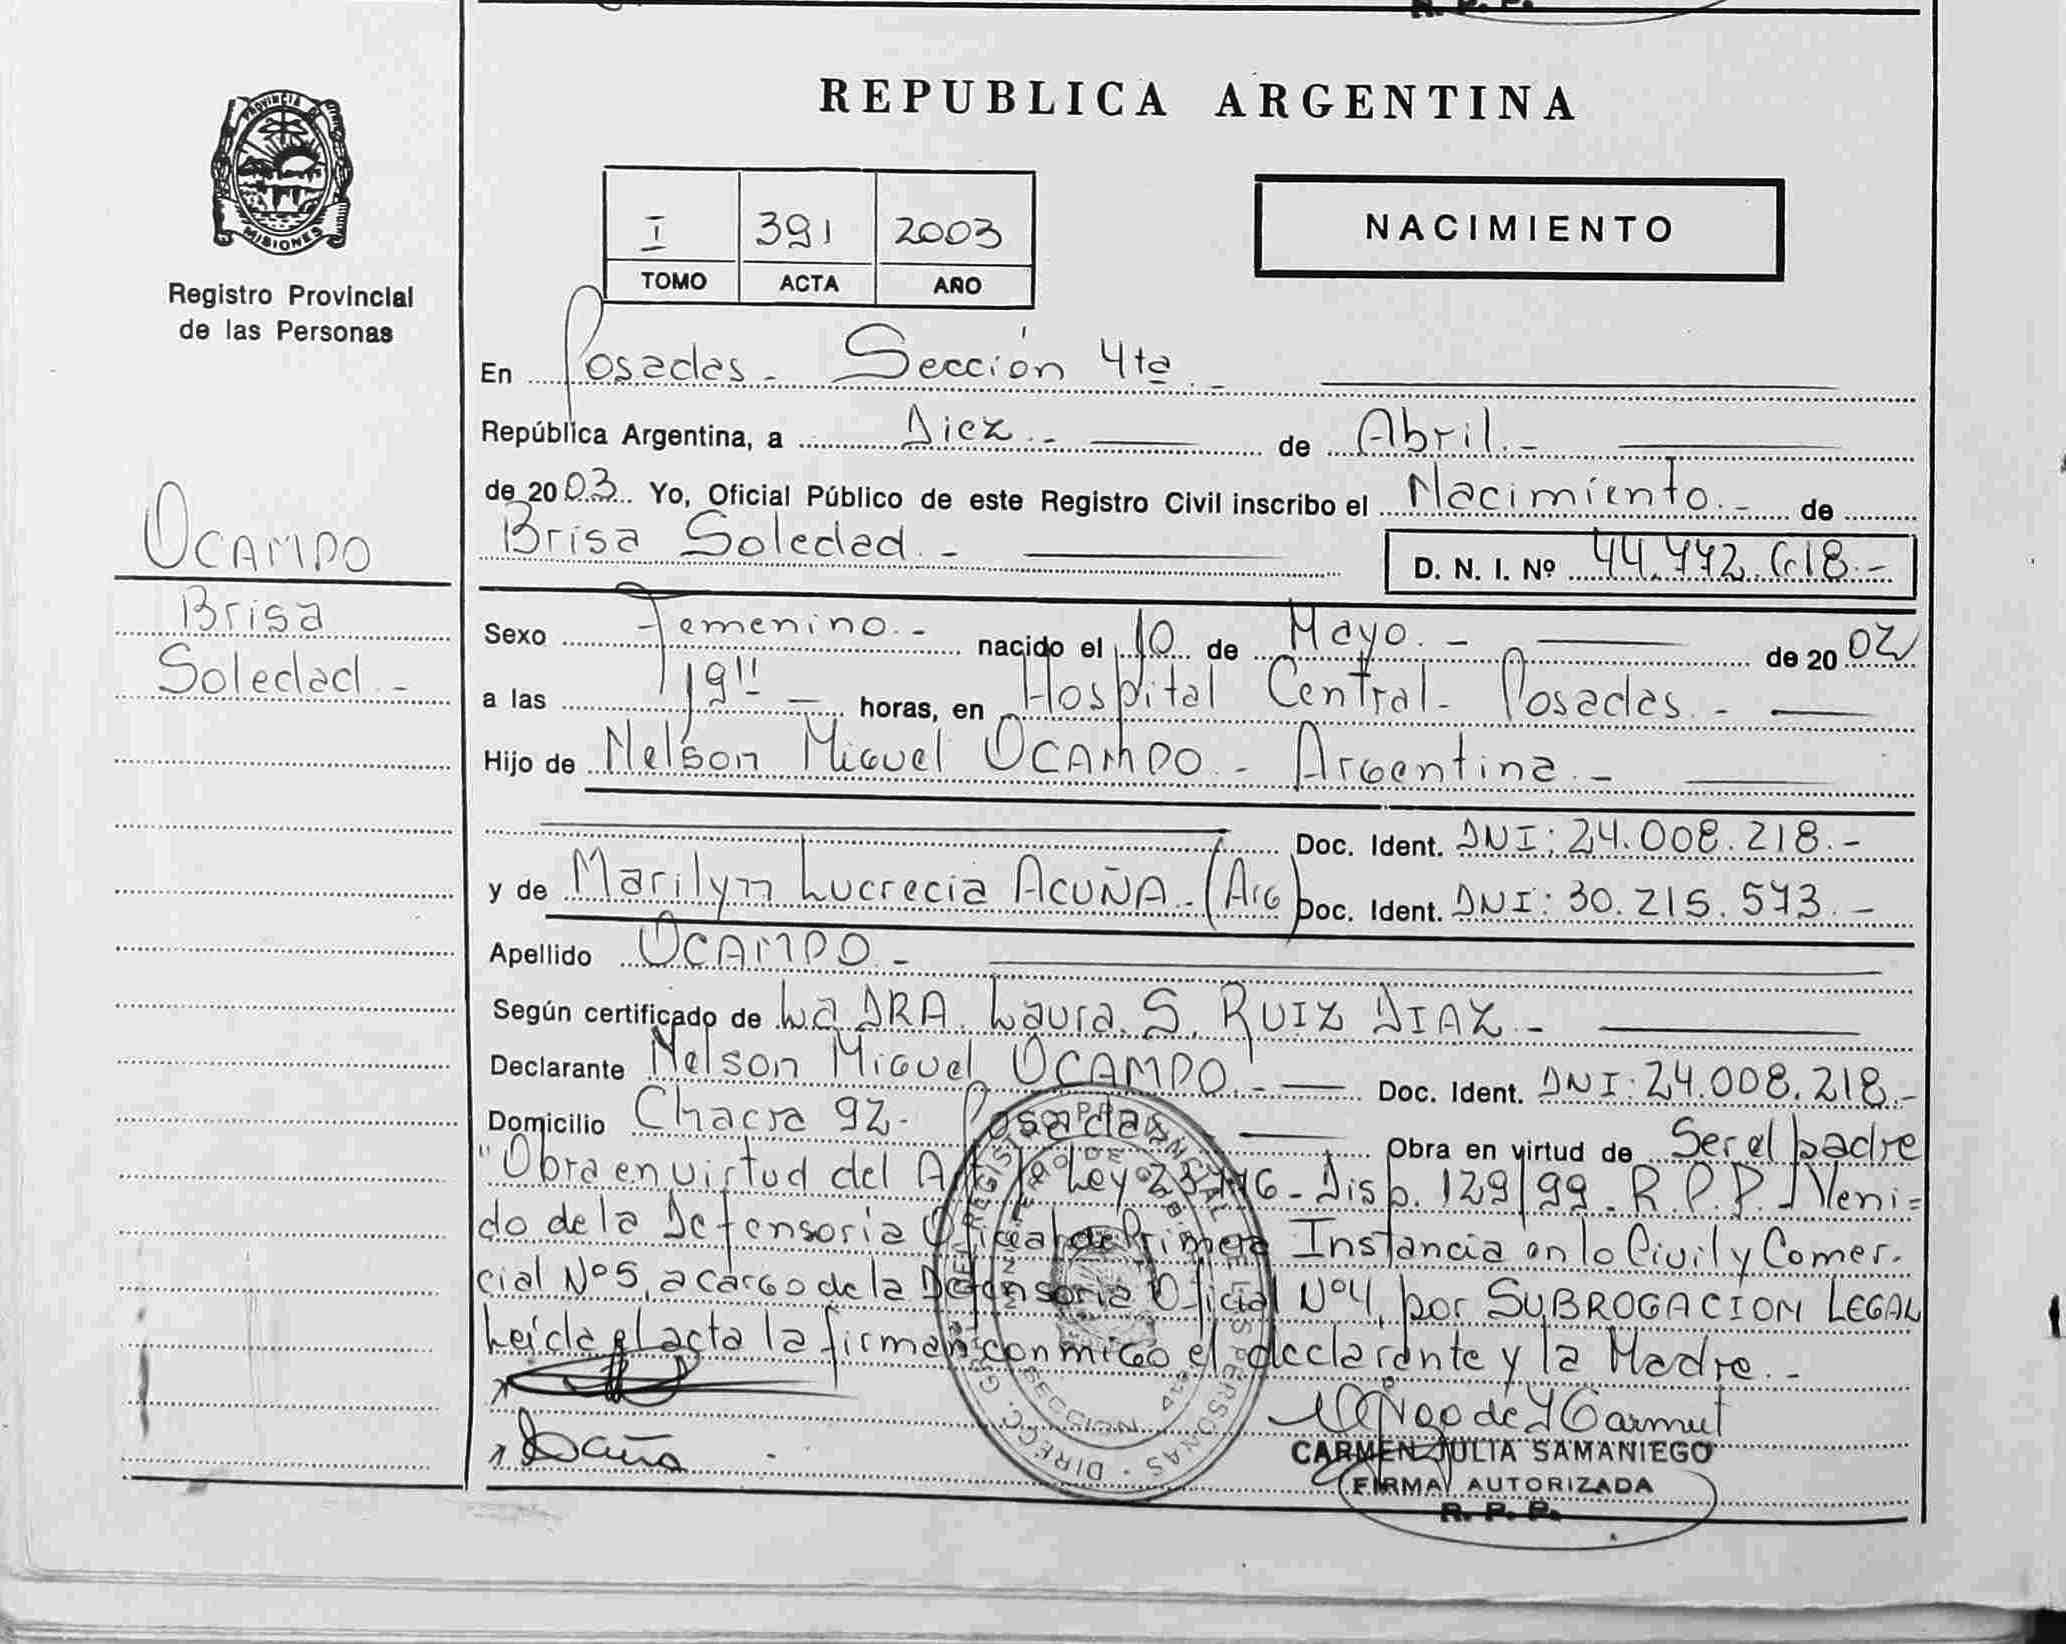 REPUBLICA ARGENTINA
PROVINCIA DE MISIONES
Registro Provincial
de las Personas
I 391 2003
TOMO ACTA AÑO
NACIMIENTO
OCAMPO
Brisa
Soledad.-
En Posadas.- Sección 4ta.-
República Argentina, a Diez.- de Abril.-
de 2003. Yo, Oficial Público de este Registro Civil inscribo el Nacimiento.- de
Brisa Soledad.- D. N. I. Nº 44.472.618.-
Sexo Femenino.- nacido el 10 de Mayo.- de 2002
a las 19 horas, en Hospital Central- Posadas.-
Hijo de Nelson Miguel OCAMPO.- Argentina.-
Doc. Ident. DNI: 24.008.218.-
y de Marilyn Lucrecia ACUÑA.- (Arg) Doc. Ident. DNI: 30.215.573.-
Apellido OCAMPO.-
Según certificado de La DRA. Laura. S. RUIZ DIAZ.-
Declarante Nelson Miguel OCAMPO.- Doc. Ident. DNI: 24.008.218.-
Domicilio Chacra 92- Posadas Obra en virtud de Ser el padre
"Obra en virtud del Ley - Disp. 129/99. R.P.P. Veni=
do de la Defensoria Oficial de Primera Instancia en lo Civil y Comer-
cial Nº5, a cargo de la Defensoria Oficial Nº4, por SUBROGACION LEGAL
Leída el acta la firman conmigo el declarante y la Madre.-
CARMEN JULIA SAMANIEGO
FIRMA AUTORIZADA
R. P. P.